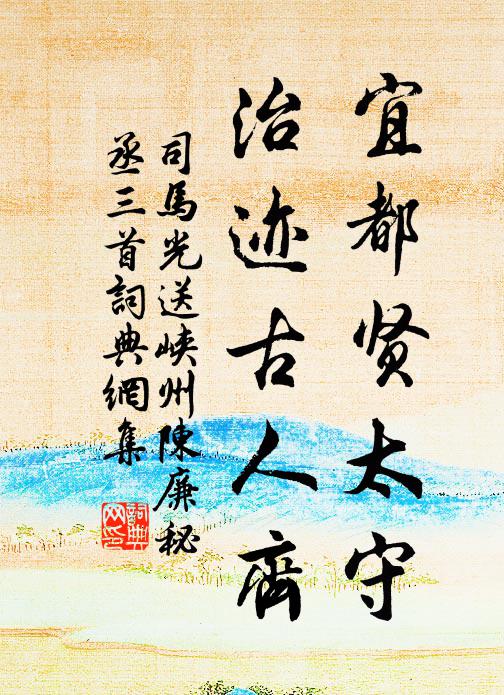 宜都贤太守
治迹古人齊
司馬光送峡州陳廉秘
丞三首詞典網集
詞典